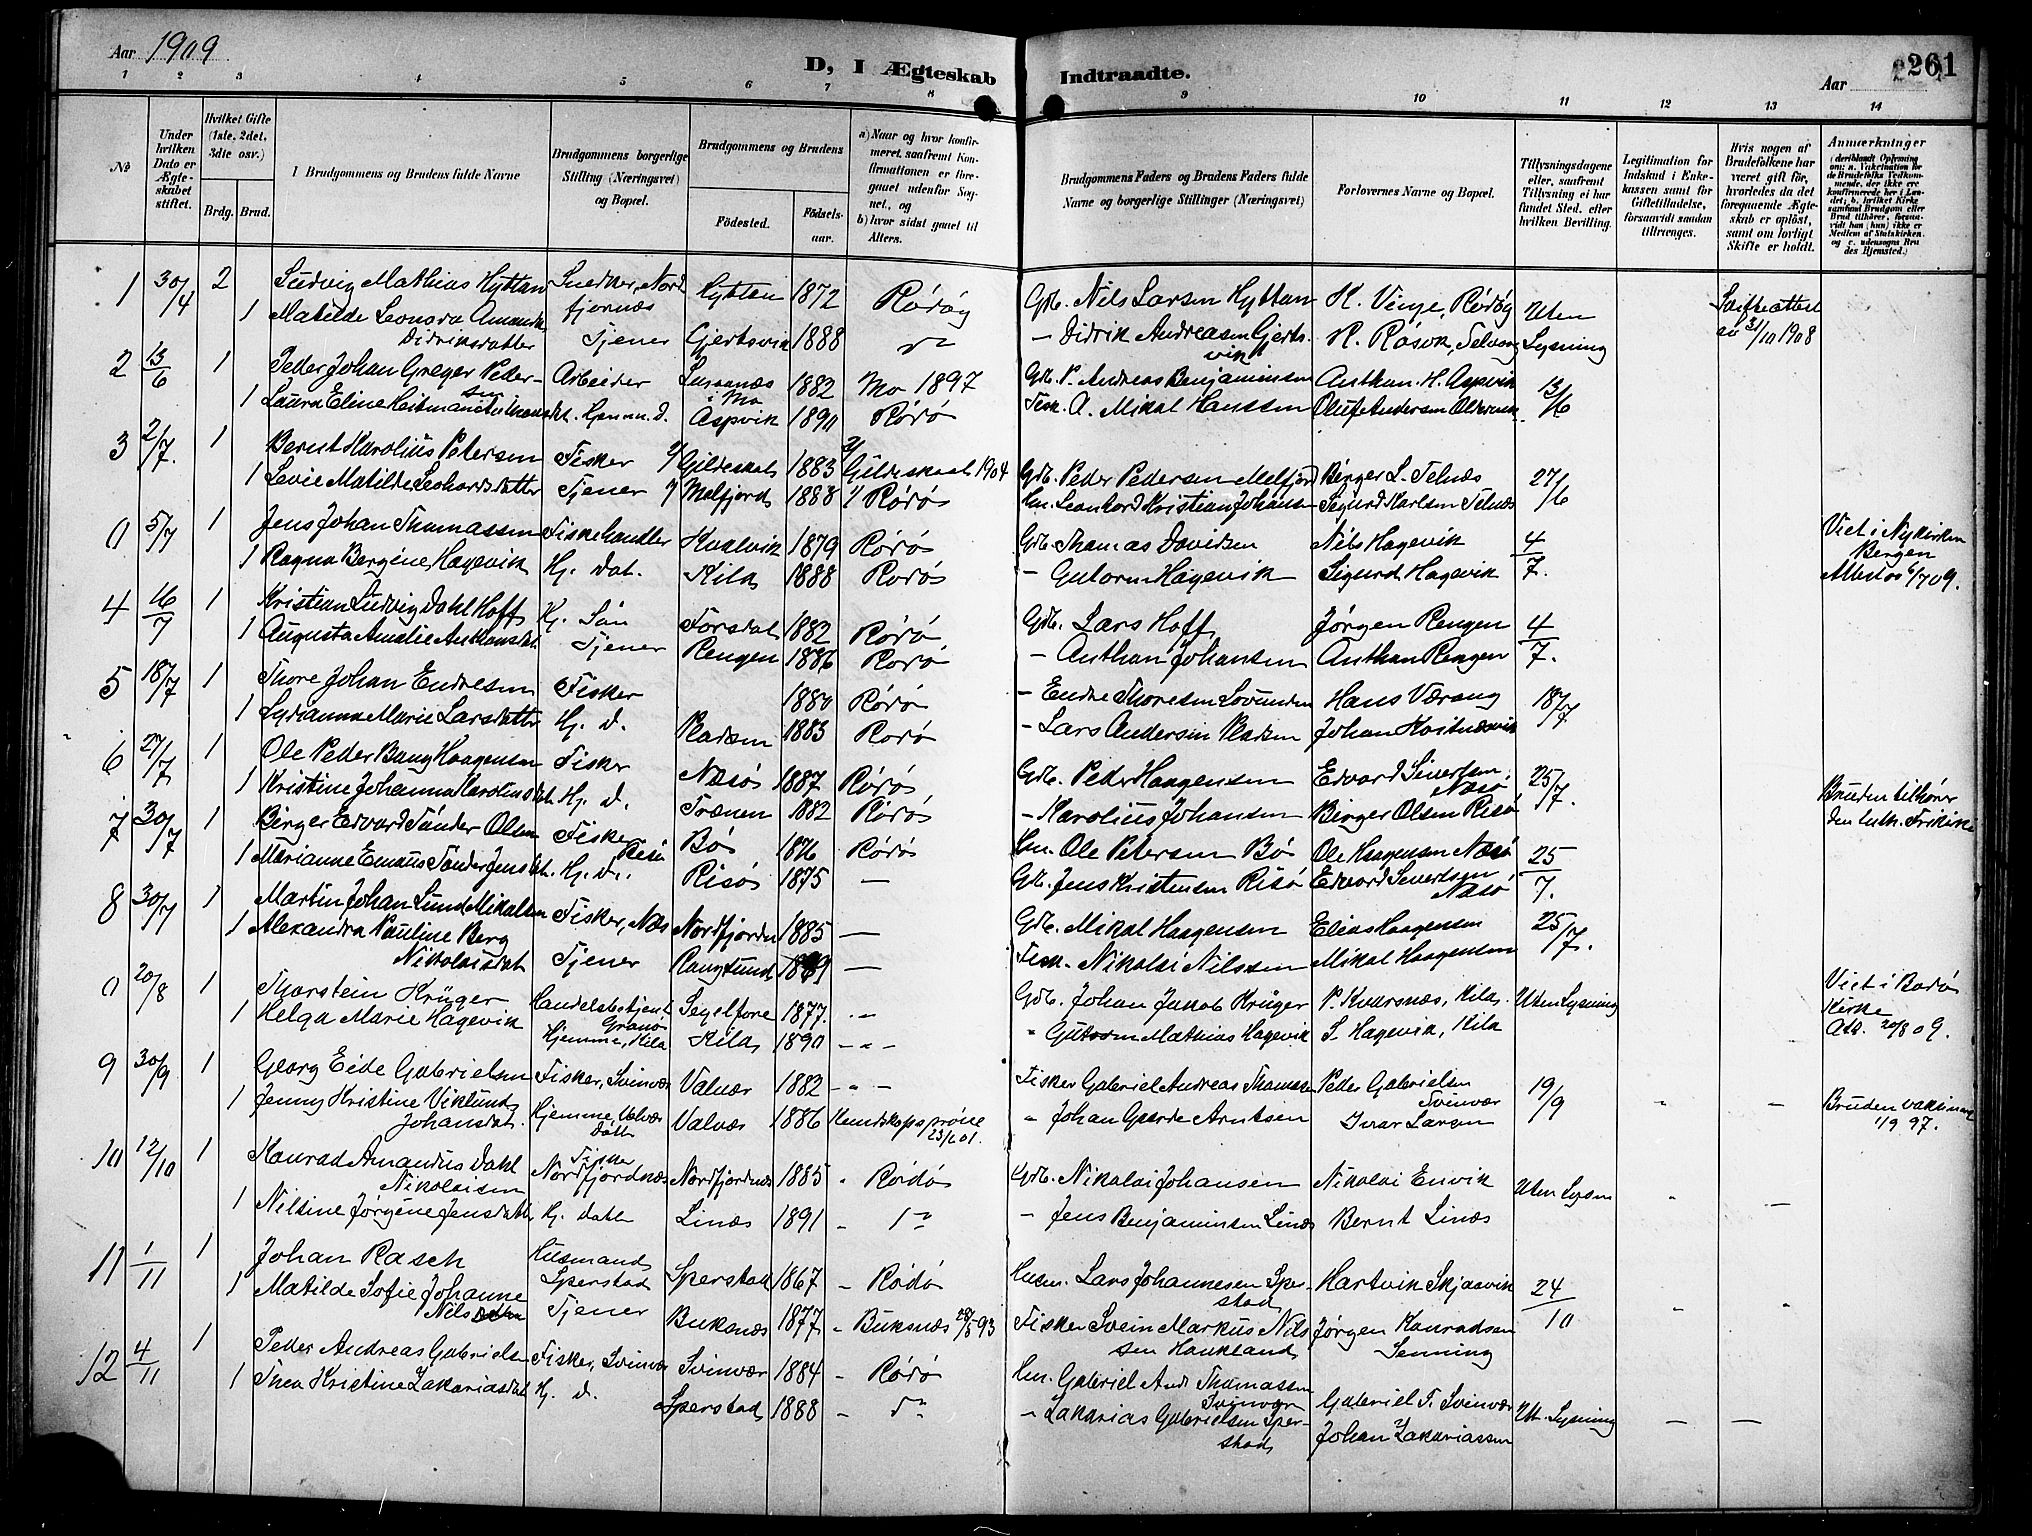 Aar 1909
D, I Ægteskab Indtraadte.
Aar
261
1 2 3 4 5 6 7 8 9 10 11 12 13 14
No
Under hvilken Dato er Ægteskabet stiftet.
Hvilket Gifte (1ste, 2det, 3die osv.)
Brdg. Brud.
Brudgommens og Brudens fulde Navne
Brudgommens borgerlige Stilling (Næringsvei) og Bopæl.
Brudgommens og Brudens
Födested. Födselsaar.
a) Naar og hvor konfirmeret, saafremt Konfirmationen er foregaaet udenfor Sognet, og
b) hvor sidst gaaet til Alters.
Brudgommens Faders og Brudens Faders fulde Navne og borgerlige Stillinger (Næringsvei)
Forlovernes Navne og Bopæl.
Tillysningsdagene eller, saafremt Tillysning ei har fundet Sted, efter hvilken Bevilling.
Legitimation for Indskud i Enkekassen samt for Giftetilladelse, forsaavidt saadan tiltrænges.
Hvis nogen af Brudefolkene har været gift för, hvorledes da det foregaaende Ægteskab er oplöst, samt om lovligt Skifte er holdt.
Anmærkninger
1 30/4 2 Ludvig Mathias Hyttan Snedker, Nordfjornæs Hyttan 1872 Rödöy Gdb. Nils Larsen Hyttan H. Vinje, Rödöy Uten Skifteattest 31/10 1908
1 Matilde Leonora Amanda Didriksdatter Tjener Gjertsvik 1888 do - Didrik Andreasen Gjertsvik H. Rösok, Selvær Lysning
2 13/6 1 Peder Johan Greger Pedersen Arbeider i Mo 1882 Mo 1897 Gdb. P. Andreas Benjaminsen Anthon H. Aspvik 13/6
1 Laura Eline Aspvik 1890 Rödö Fisk. A. Mikal Hanssen Oluf Andersen
3 2/7. 1 Bernt Karolius Petersen Fisker Gildeskal 1883 Gildeskaal 1904 Gdb. Peder Pedersen Melfjord Birger L. Selnæs 27/6
1 Lovie Matilde Leohardsdatter Tjener Melfjord 1888 Rödö Hm. Leonhard Kristian Johansen Sigurd Karlsen Selnæs
0 5/7 1 Jens Johan Thomassen Fiskehandler Kvalvik 1879 Rödö Gdb. Thomas Davidsen Nils Hagevik 4/7. Viet i Nykirken Bergen
1 Ragna Bergine Hagevik Hj. dat. Kila 1888 Rödö - Gutorm Hagevik Sigurd Hagevik Attest 6/7 09.
4 16/7 1 Kristian Ludvig Dahl Hoff Hj. Sön Forsdal 1882 Rödö Gdb. Lars Hoff Jørgen Rengen 4/7.
1 Augusta Amalie Anthonsdat. Tjener Rengen 1886 Rödö - Anthon Johansen Anthon Rengen
5 18/7 1 Thore Johan Endresen Fisker 1880 Rödö - Endre Thoresen Lovunden Hans Værang 18/7
1 Lydianna Marie Larsdatter Hj. d. 1883 Rödö - Lars Andersen Johan
6 27/7 1 Ole Peder Bang Haagensen Fisker Næsö 1887 Rödö Gdb. Peder Haagensen Edvard Sivertsen, Næsö 25/7.
1 Kristine Johanna Karolinsdat. Hj. d. Trænen 1882 Rödö - Karolius Johansen Birger Olsen Risö
7 30/7 1 Birger Edvard Tönder Olsen Fisker Risö Bö 1876 Rödö Hm. Ole Petersen Bö Ole Haagensen Næsö 25/7. Bruden tilhører den luth. Frikirke
1 Marianne Emaus Tönder Jensdat. Hj. d. Risö 1875 — Gdb. Jens Kristensen Risö Edvard Sivertsen Næsö
8 30/7 1 Martin Johan Lund Mikalsen Fisker, Næs Nordfjorden 1885 — Gdb. Mikal Haagensen Elias Haagensen 25/7.
1 Alexandra Pauline Berg Nikolaisdat Tjener Rangsund — Fisk. Nikolai Nilssen Mikal Haagensen
0 20/8 1 Thorstein Krüger Handelsbetjent Segelfore 1877. Gdb. Johan Jakob Krüger P. Kvarsnæs, Kila. Uten Lysning Viet i Bodö Kirke
1 Helga Marie Hagevik Hjemme, Kila Kila 1890 - " - " Gutorm Mathias Hagevik S. Hagevik, Kila Att. 20/8 09.
9 30/9 1 Georg Eide Gabrielsen Fisker, Svinvær Valvær 1882 - " - Fisker Gabriel Andreas Thomassen Peder Gabrielsen Svinvær 19/9
1 Jenny Kristine Viklund Johansdat. Hjemme, Valvær Datt. Valvær 1886 Kundskapspröve 23/6 01. " Johan Gjerde Arntsen Ivar Larsen - - Bruden vaksinert 1/9 97.
10 12/10 1 Konrad Amandus Dahl Nikolaisen Fisker Nordfjordnæs Nordfjordnæs 1885 - Rödö Gdb. Nikolai Johansen Nikolai Envik Uten Lysn
1 Nilsine Jørgine Jensdatter Hj. datt. Linæs 1891 - do - Jens Benjaminsen Linæs Bernt Linæs
11 1/11 1 Johan Rasch Husmand Sperstad Sperstad 1867 - Rödö Husm. Lars Johannesen Sperstad Hartvik Skjaavik 24/10
1 Matilde Sofie Johanne Nilsdatter Tjener Buksnæs 1877 - Buksnæs 28/5 93 Fisker Svein Markus Nilssen Haukland Jörgen Konradsen Senning
12 4/11 1 Peder Andreas Gabrielsen Fisker, Svinvær Svinvær 1884 - Rödö Hm. Gabriel And. Thomassen Svinvær Gabriel T. Svinvær Ut. Lysning — —
1 Thea Kristine Zakariasdat. Hj. d. Sperstad 1888 - do - Zakarias Gabrielsen Sperstad Johan Zakariassen